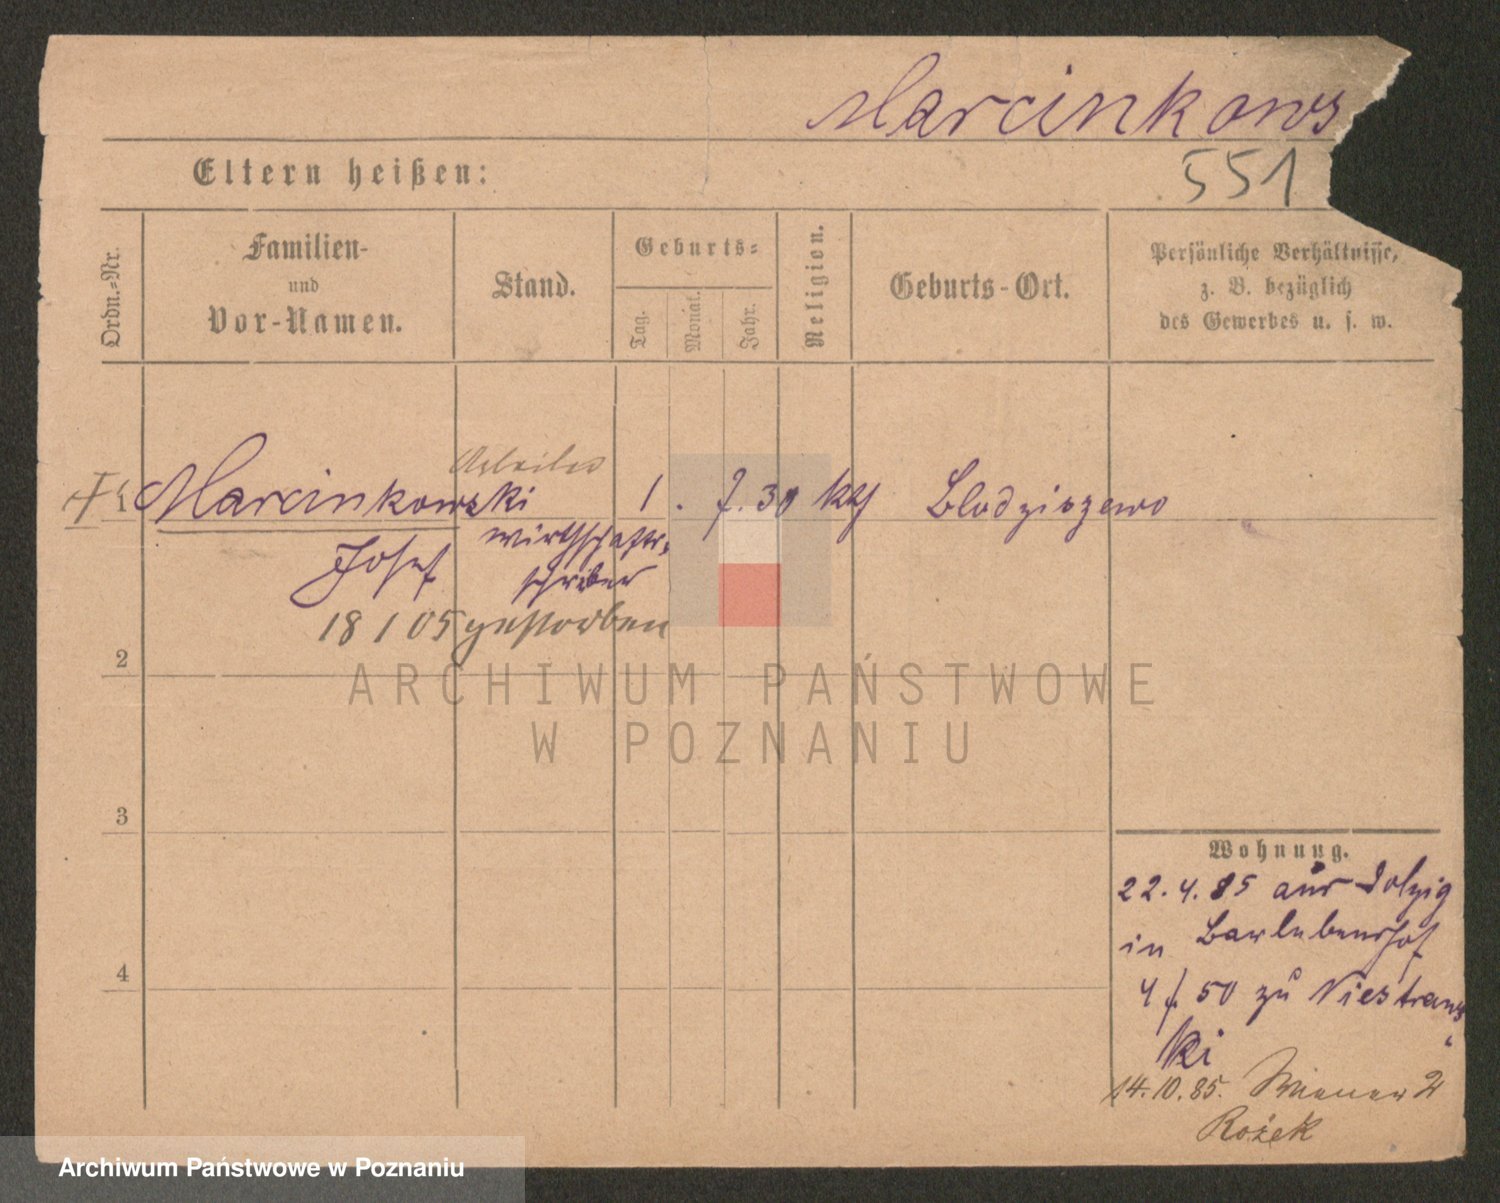 Marcinkows
551
Eltern heißen:
Ordn.-Nr.
Familien-
und
Vor-Namen.
Stand.
Geburts-
Tag.
Monat.
Jahr.
Religion.
Geburts-Ort.
Persönliche Verhältnisse,
z. B. bezüglich
des Gewerbes u. s. w.
1 Marcinkowski 1. 7. 30 kth Blodziszewo
Josef
wirthschafts-
schreiber
18 1 05 gestorben
2
3
4
Wohnung.
22.4.85 aus Dolzig
in Barlebenshof
4 f. 50 zu Niestraws
ki
14.10.85. Wiener 2
Rożek
ARCHIWUM PAŃSTWOWE
W POZNANIU
Archiwum Państwowe w Poznaniu